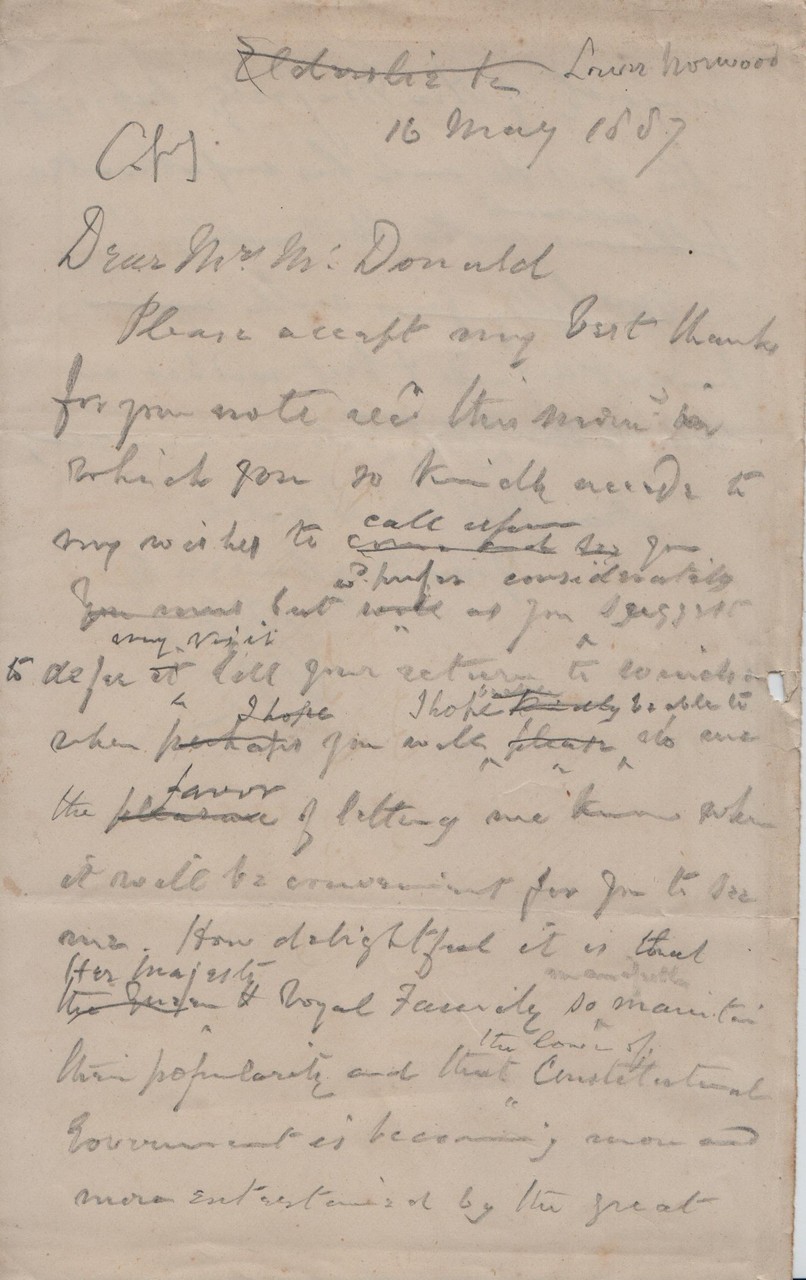 Elderslie Lower Norwood
16 May 1887
Dear Mrs McDonald
Please accept my best thanks
for your note recd this morng in
which you so kindly accede to
my wishes to call upon
come and see you
prefer considerately
You must but will as you suggest
my visit
to defer it till your return to
I hope I hope kindly be able to
when perhaps you will please do me
favor
the pleasure of letting me know when
it will be convenient for you to see
me. How delightful it is that
Her Majesty
the Queen & Royal Family so maintain
the love of
their popularity and that Constitutional
Government is becoming more and
more entertained by the great